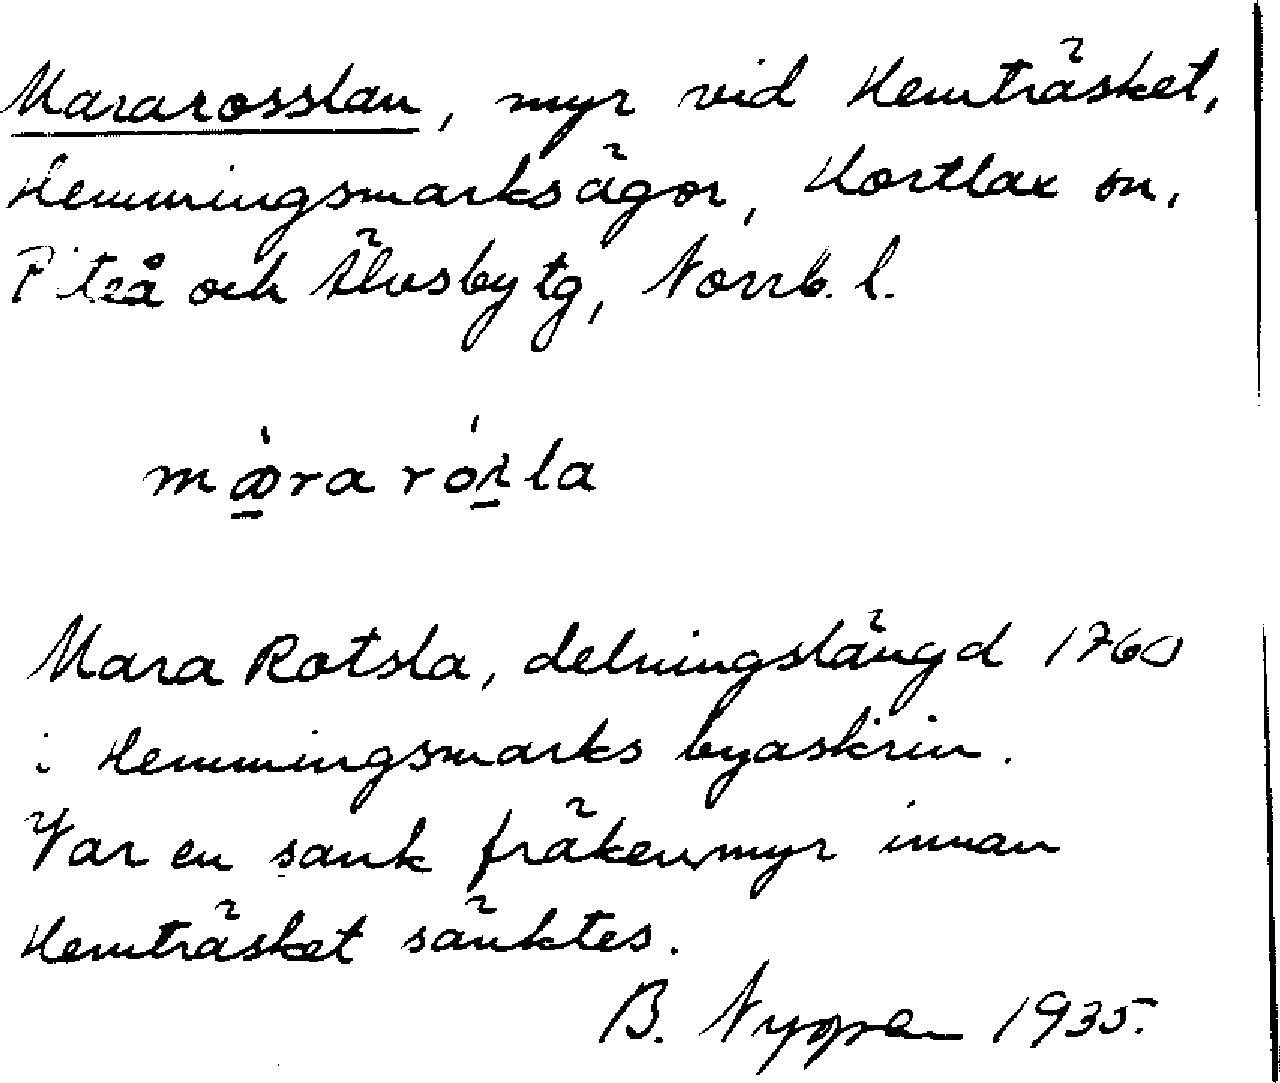 Mararosslan, myr vid Hemträsket,
Hemmingsmarksägor, Hortlax sn,
Piteå och Älvsby tg, Norrb. l.
Mara Rotsla, delningslängd 1760
i Hemmingsmarks byaskrin.
Var en sank fräkenmyr innan
Hemträsket sänktes.
B. Nygren 1935.